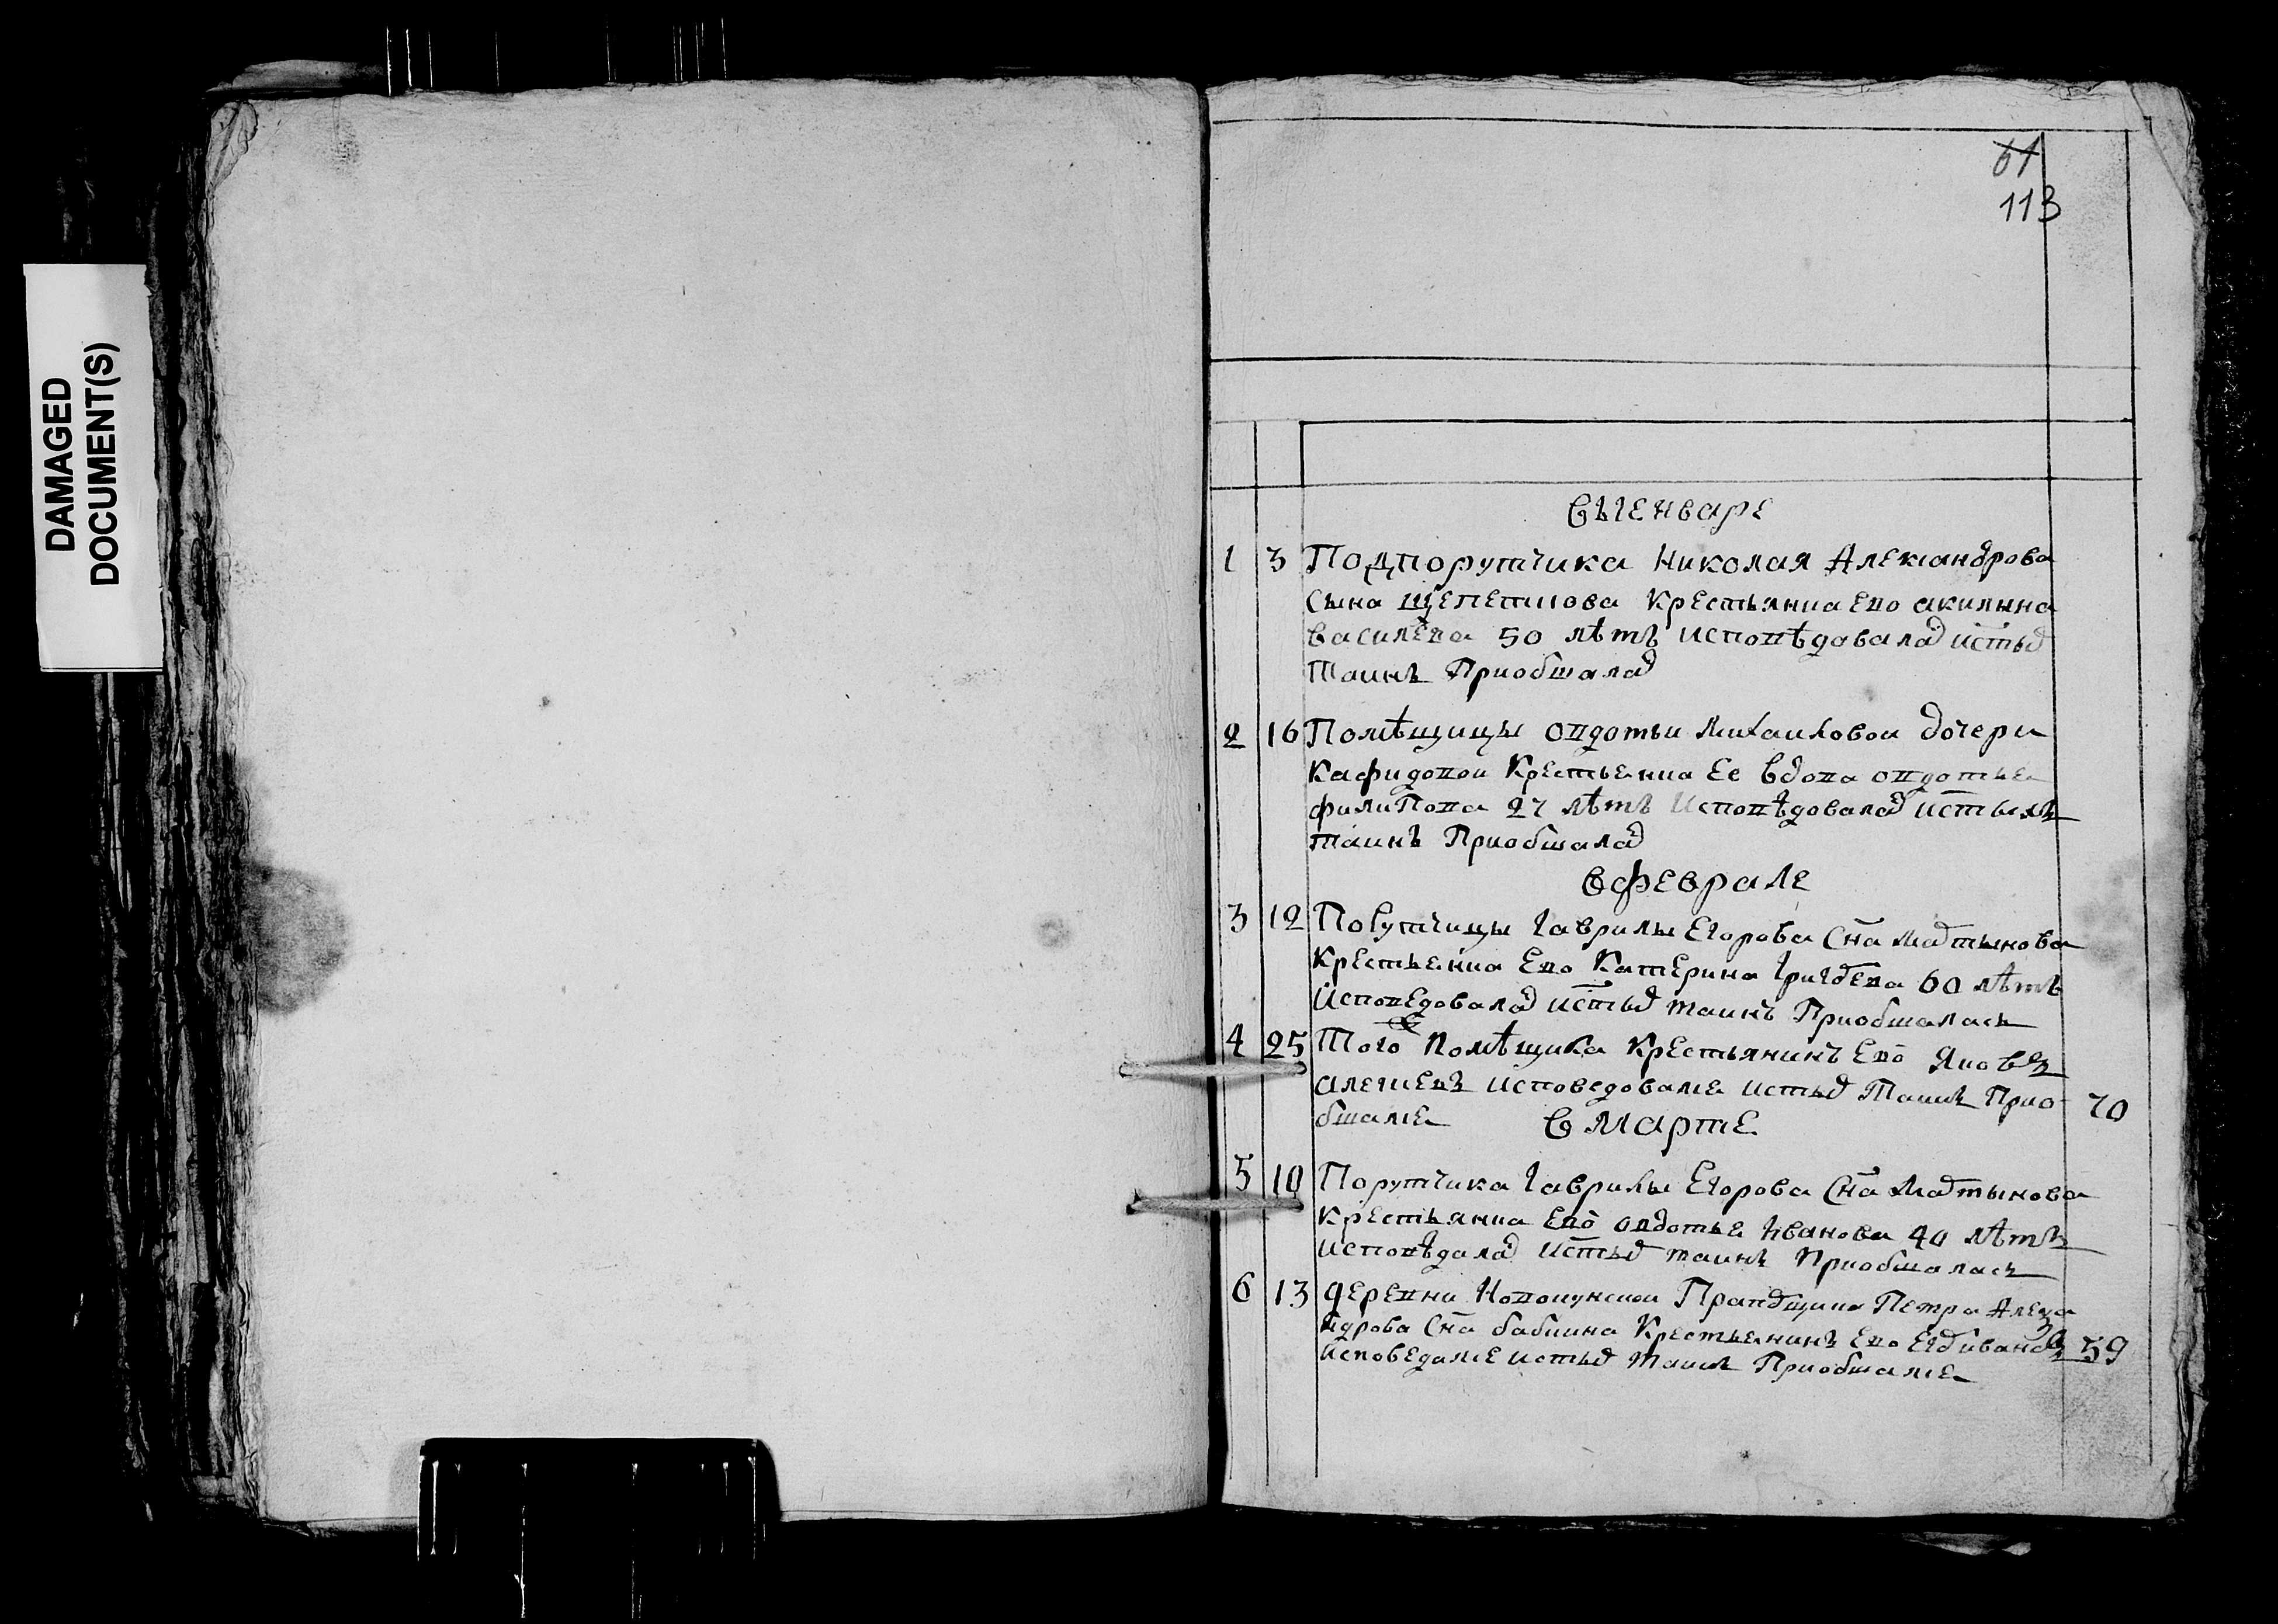 DAMAGED
DOCUMENT(S)
61
113
Въ Генваре
1 3 Подпорутчика Николая Александрова
сына Щепеткова крестьянка ево акилина
василева 50 лѣтъ исповѣдовалас истых
таинъ приобшалас
2 16 Помѣщицы овдотьи Михаиловои дочери
Кафидовои крестьенка Ее вдова овдотья
филипова 27 лѣтъ исповѣдовалас истыхъ
таинъ Приобшалас
в феврале
3 12 Порутчицы Гаврилы Егорова сна Мартынова
крестьенка Ево Катерина Григорева 60 лѣтъ
исповедовалас истых таинъ Приобшалась
4 25 Того ж помѣщика крестьянинъ Ево Яковъ
алексеевъ исповедовался истых таинъ Прио 70
бшался
в марте
5 10 Порутчика Гаврилы Егорова сна Мартынова
крестьянка Ево овдотья Иванова 40 лѣтъ
исповѣдалас истых таинъ приобшалась
6 13 деревни Прапорщика Петра Алекса
ндрова сна бабкина Крестьенинъ Ево Егор ивановъ 59
исповедался истых таинъ Приобшался